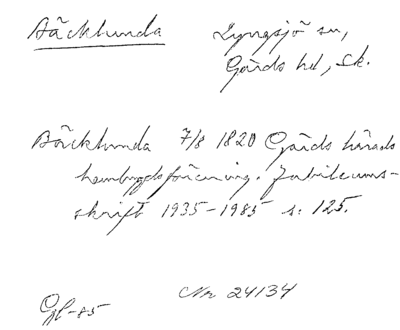 Bäcklunda Lyngsjö sn,
Gärds hd, Sk.
Bäcklunda 7/8 1820 Gärds härads
hembygdsförening. Jubileums-
skrift 1935-1985 s. 125.
Nr 24134